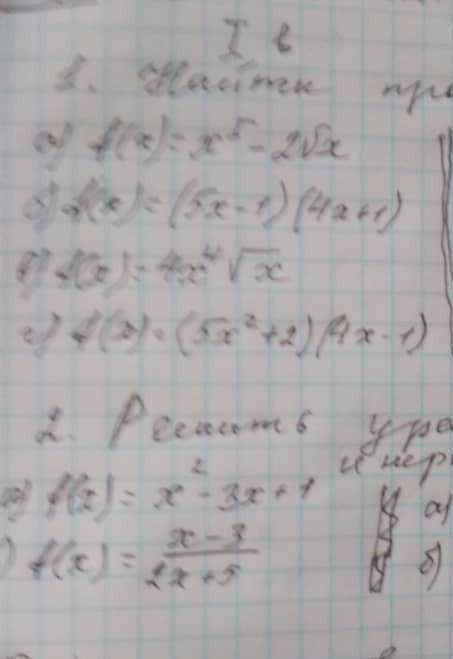 I в
1. Найти
а) f(x) = x⁵ - 2√x
б) f(x) = (5x-1)(4x+1)
в) f(x) = 4x⁴√x
г) f(x) = (5x²+2)(4x-1)
2. Решить
а) f(x) = x² - 3x + 1
а)
) f(x) = (x-3)/(2x+5)
б)